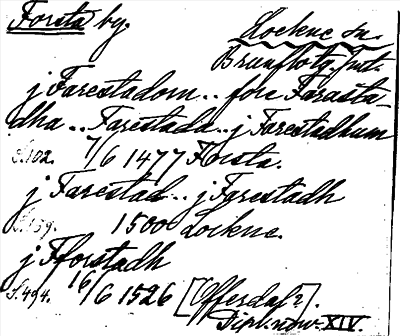 Forsta by. Lockne sn.
Brunflo tg. Jmt.
j Farestadom.. fore Farasta-
dha.. Farestada.. j Farestadhum
S.102. 7/6 1477 Forsta.
j Farestad.. j Farestadh
S.159. 1500 Lockne.
j Fforstadh
S.494. 16/6 1526 [Offerdal?].
Dipl. norv. XIV.